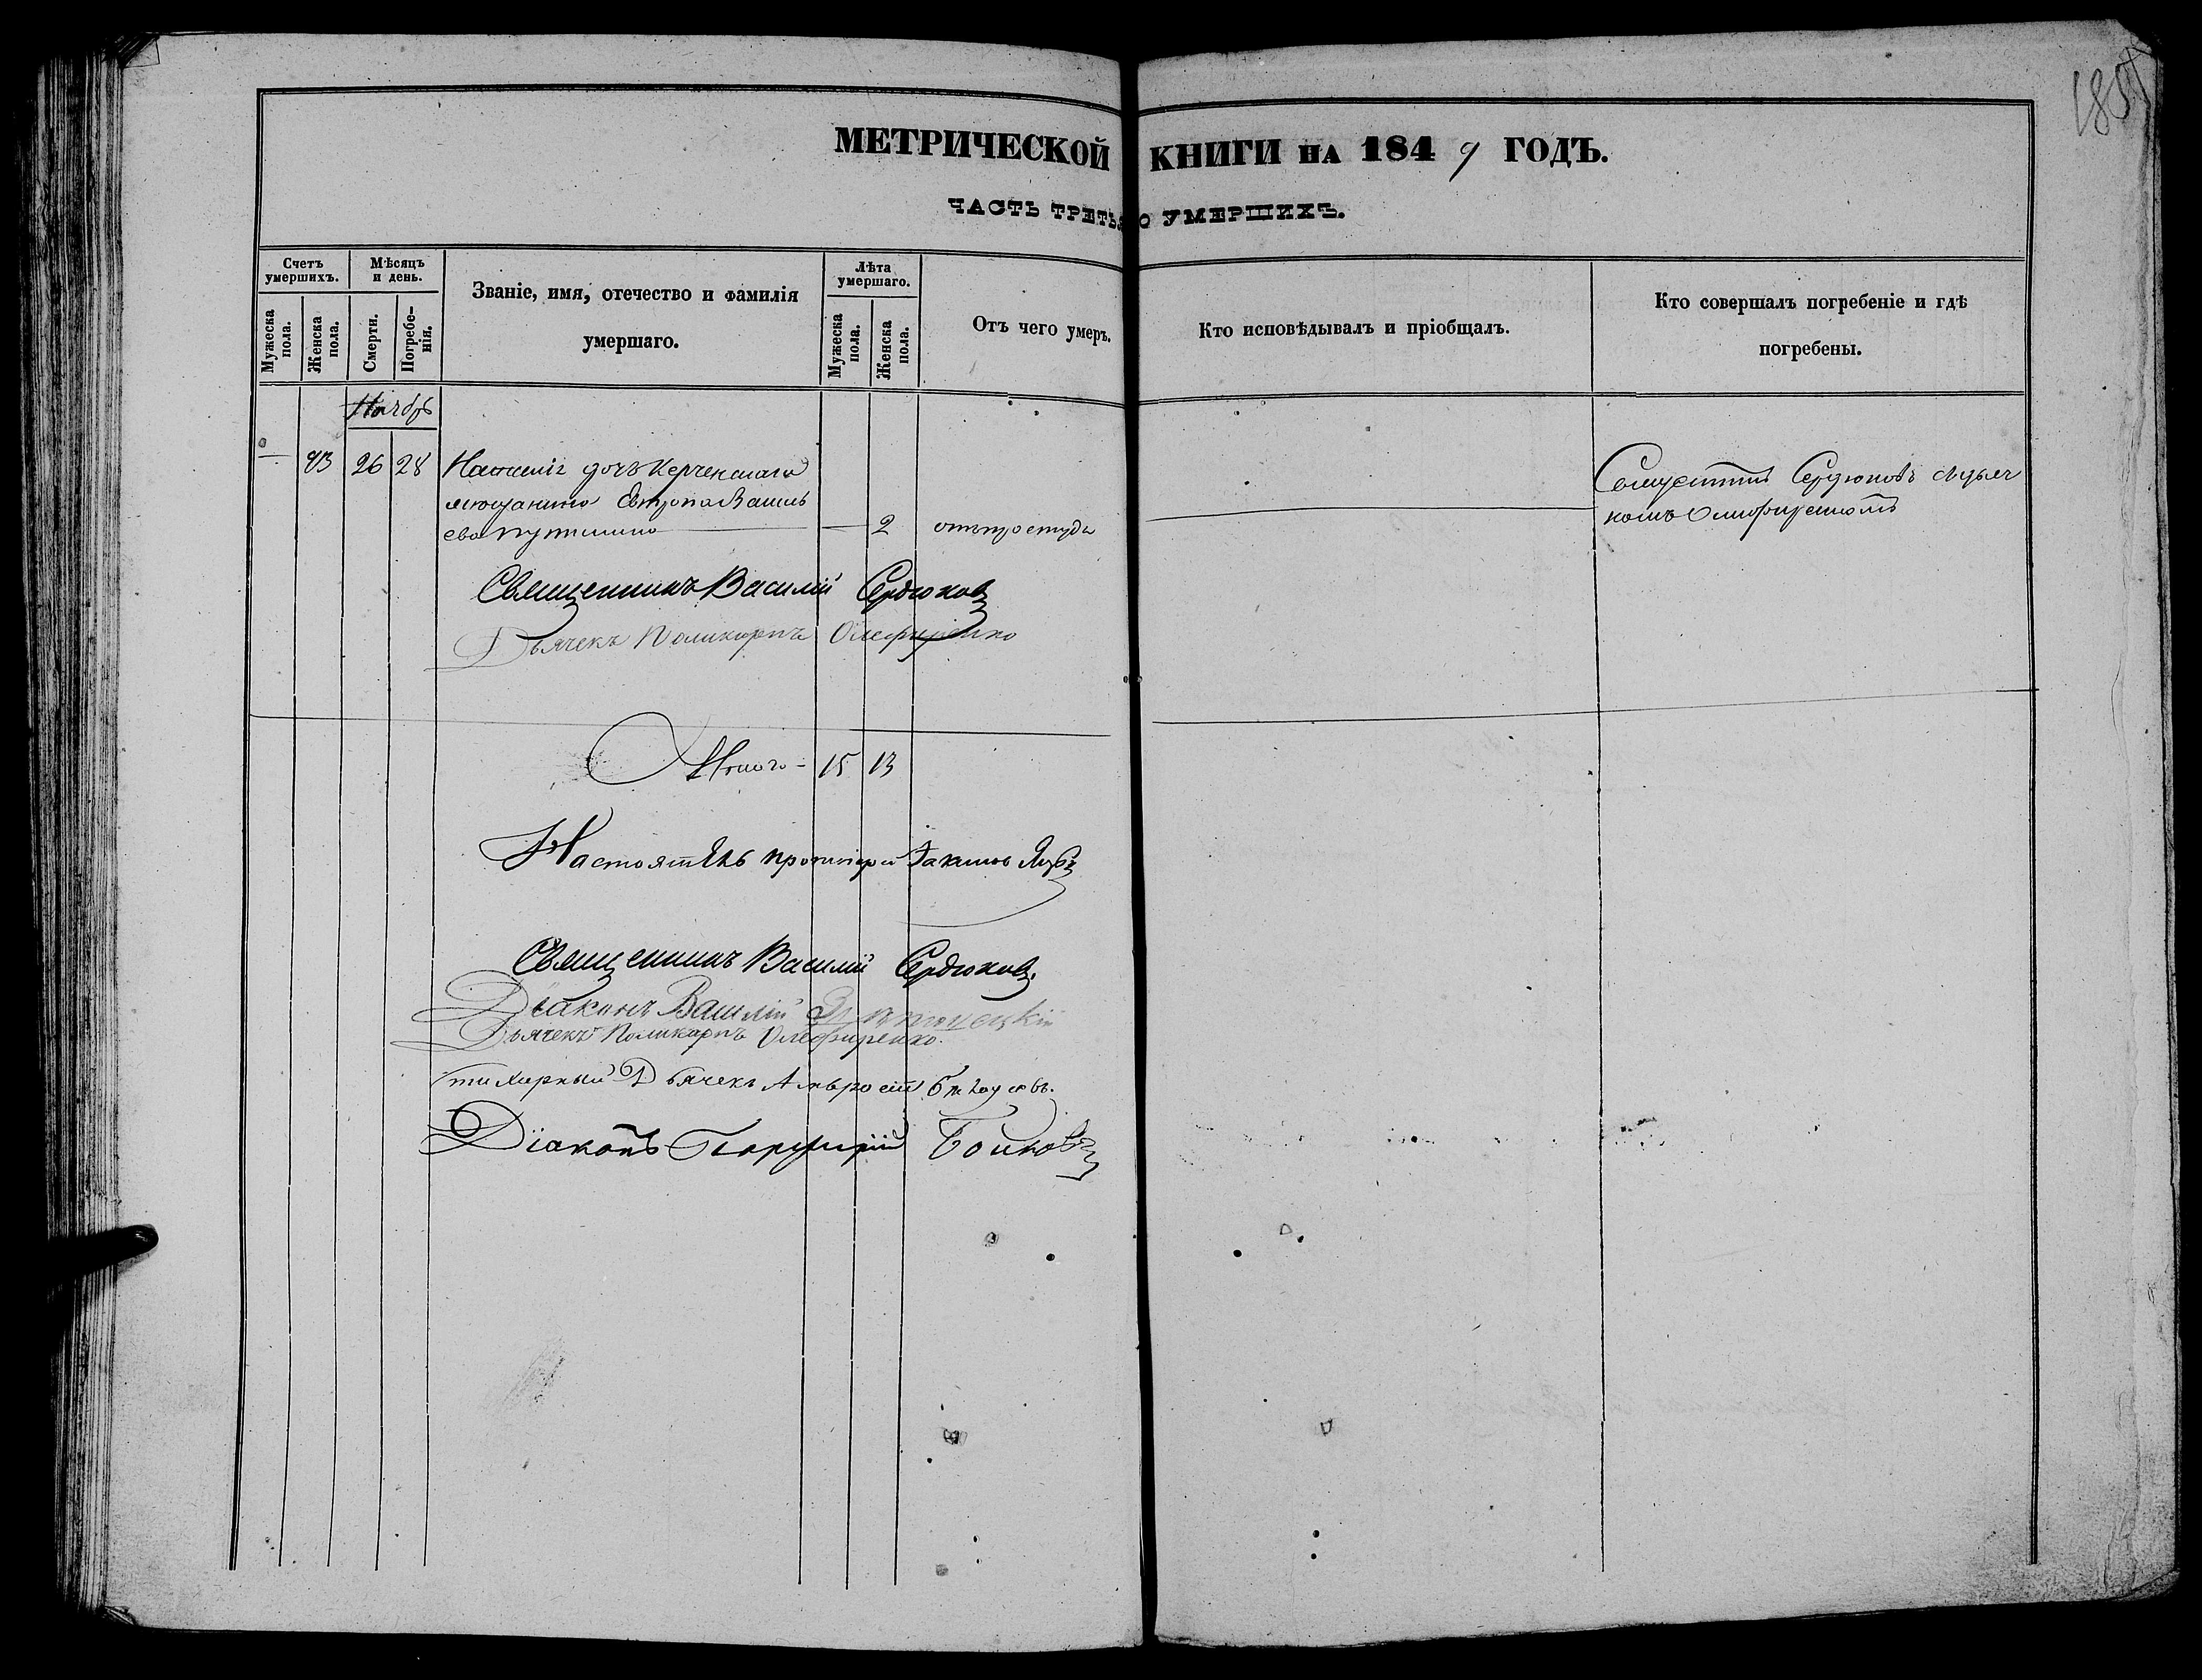 185
МЕТРИЧЕСКОЙ КНИГИ НА 1849 ГОДЪ.
ЧАСТЬ ТРЕТЬЯ О УМЕРШИХЪ.
Счетъ умершихъ.
Мужеска пола.
Женска пола.
Мѣсяцъ и день.
Смерти.
Погребенія.
Званіе, имя, отечество и фамилія
умершаго.
Лѣта умершаго.
Мужеска пола.
Женска пола.
Отъ чего умеръ.
Кто исповѣдывалъ и пріобщалъ.
Кто совершалъ погребеніе и гдѣ
погребены.
Ноябрь
26 28 дочь Керченскаго
Василь
ева
2 отъ простуды
Сердюковъ съ дьяч
комъ Олефиренкомъ
Священникъ Василій Сердюковъ
Дьячекъ Поликарпъ Олефиренко
Итого - 15 13
Настоятель протоіерей
Священникъ Василій Сердюковъ.
Діаконъ Василій
Дьячекъ Поликарпъ Олефиренко.
Стихарный Дьячекъ Амвросій
Діаконъ Порфирій